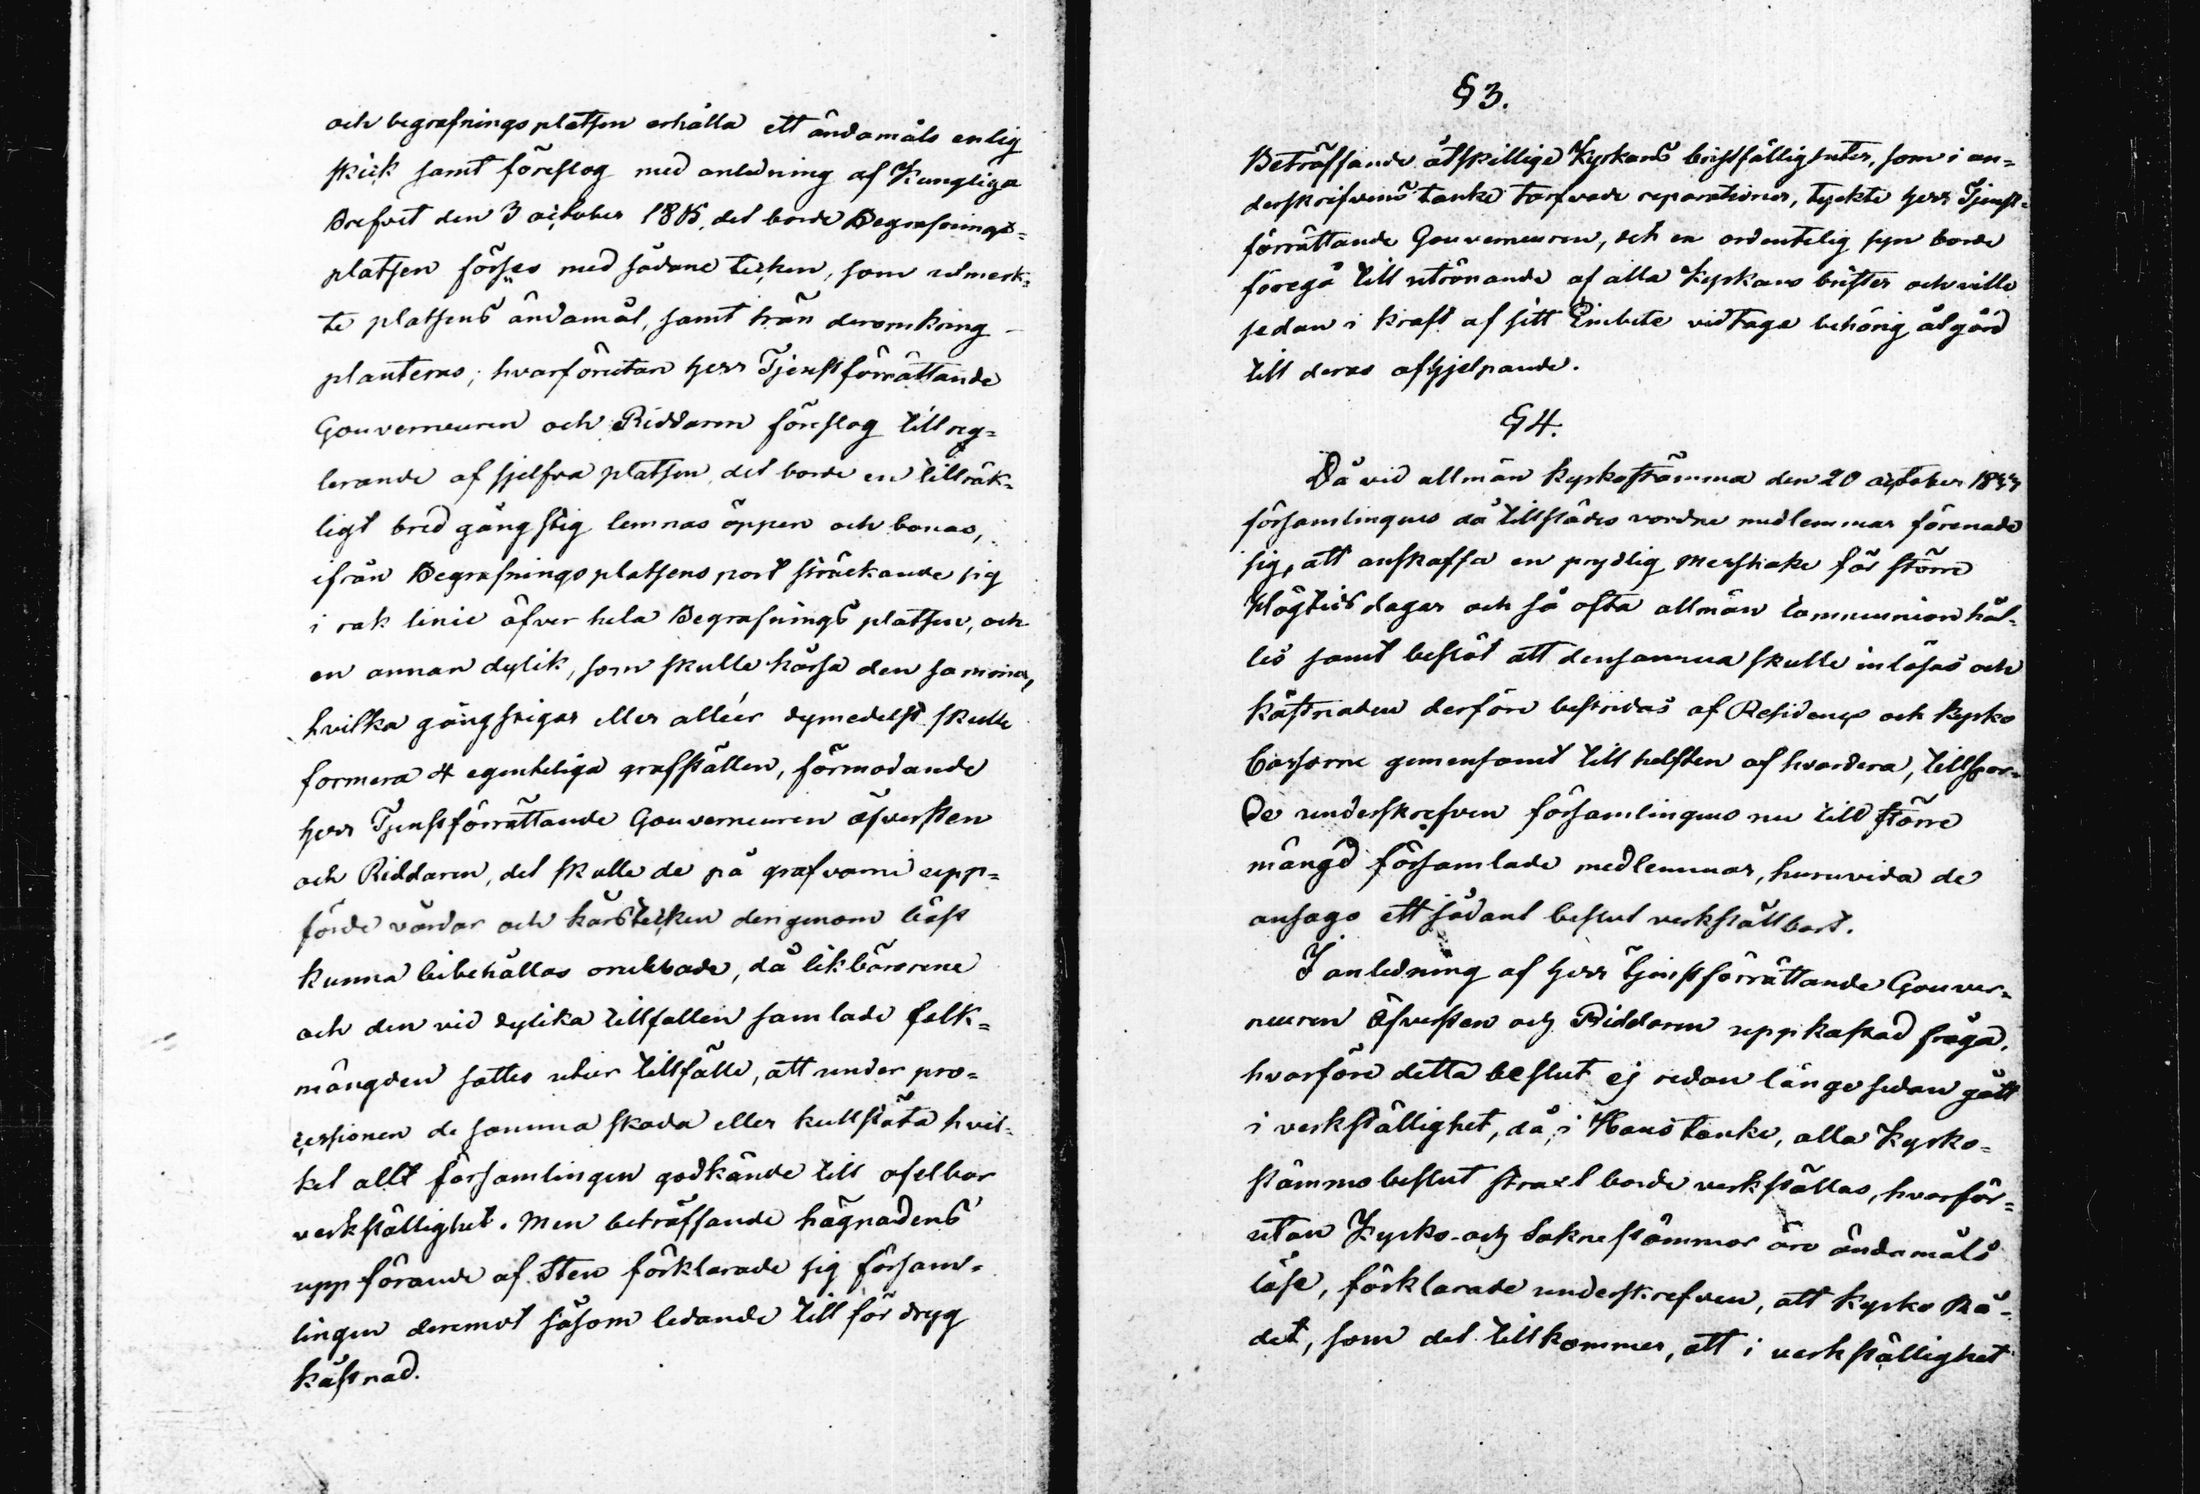 och begrafningsplatsen erhålla ett ändamåls enlig
skick samt föreslog med anledning af Kungliga
Brefvet den 3 october det borde Begrafnings=
platsen förses med sådane tecken, som utmerk=
te platsens ändamål, samt trän deromkring
planteras; hvarförutan Herr Tjenstförrättande
Gouverneuren och Riddaren föreslog till reg=
lerande af sjelfva platsen, det borde en tillräk=
ligt bred gångstig lemnas öppen och banas,
ifrån Begrafningsplatsens port sträckande sig
i rak linie öfver hela Begrafnings platsen, och
en annan dylik, som skulle kårsa den samma,
hvilka gångstigar eller alléer dymedelst skulle
formera 4 egenteliga grafställen, förmodande
Herr Tjenstförrättande Gouverneuren öfversten
och Riddaren, det skulle de på grafvarne upp=
förde vårdar och kårstecken derigenom bäst
kunna bibehållas orubbade, då likbärarene
och den vid dylika tillfällen samlade folk=
mängden sattes utur tillfälle, att under pro=
cessionen de samma skada eller kullstöta hvil=
ket allt församlingen godkände till ofelbar
verkställighet. Men beträffande hägnadens
uppförande af Sten förklarade sig försam=
lingen deremot såsom ledande till för dryg
kåstnad.
§ 3.
Beträffande åtskillige Kyrkans bristfälligheter, som i un=
derskrifvens tanke torfvade reparationer, tyckte Herr Tjenst=
förrättande Gouverneuren, det en ordentelig syn borde
föregå till utrönande af alla Kyrkans brister och ville
sedan i kraft af sitt Embete vidtaga behörig åtgärd
till deras afhjelpande.
§ 4.
Då vid allmän Kyrkostämma den 20 october
församlingens då tillstädes vordne medlemmar förenade
sig, att anskaffa en prydlig Messhake för större
Högtidsdagar och så ofta allmän Communion hål=
les samt beslöt att densamma skulle inlösas och
kåstnaden derföre bestridas af Residens och Kyrko
Cassorne gemensamt till helften af hvardera, tillspor=
de underskrefven församlingens nu till större
mängd församlade medlemmar, huruvida de
ansågo ett sådant beslut verkställbart.
I anledning af Herr Tjenstförrättande Gouver=
neuren Öfversten och Riddaren uppkastad fråga,
hvarföre detta beslut ej redan länge sedan gått
i verkställighet, då, i Hans tanke, alla Kyrko=
stämmo beslut straxt borde verkställas, hvarför=
utan Kyrko- och Sokne stämmor äro ändamåls
löse, förklarade underskrefven, att Kyrko Rå=
det, som det tillkommer, att i verkställighet